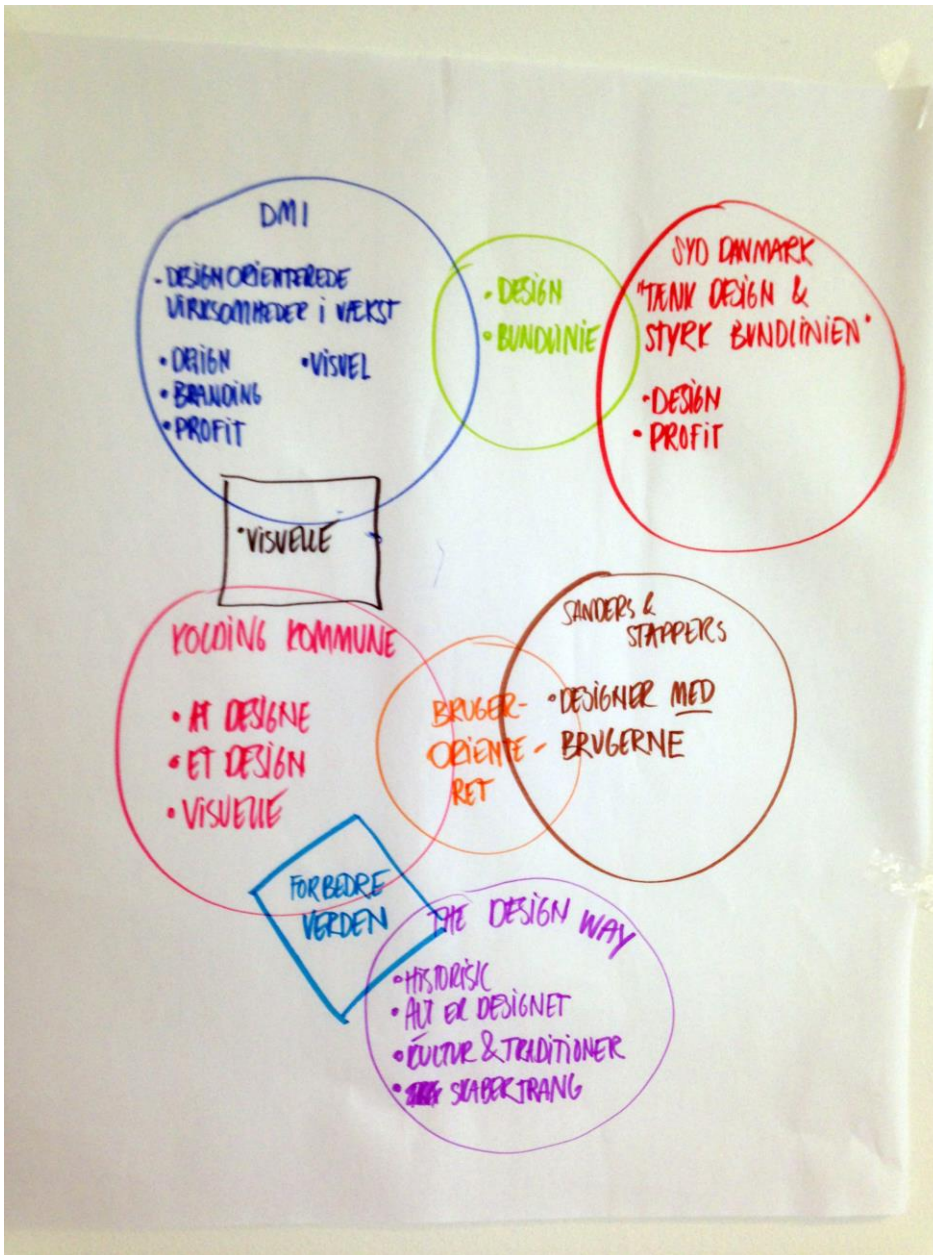 DMI
- DESIGNORIENTEREDE
VIRKSOMHEDER I VÆKST
• DESIGN
• VISUEL
• BRANDING
• PROFIT
• DESIGN
• BUNDLINIE
SYD DANMARK
"TÆNK DESIGN &
STYRK BUNDLINIEN"
• DESIGN
• PROFIT
• VISUELLE
KOLDING KOMMUNE
• AT DESIGNE
• ET DESIGN
• VISUELLE
BRUGER-
ORIENTE-
RET
SANDERS &
STAPPERS
• DESIGNER MED
BRUGERNE
FORBEDRE
VERDEN
THE DESIGN WAY
• HISTORISK
• ALT ER DESIGNET
• KULTUR & TRADITIONER
• SKABERTRANG